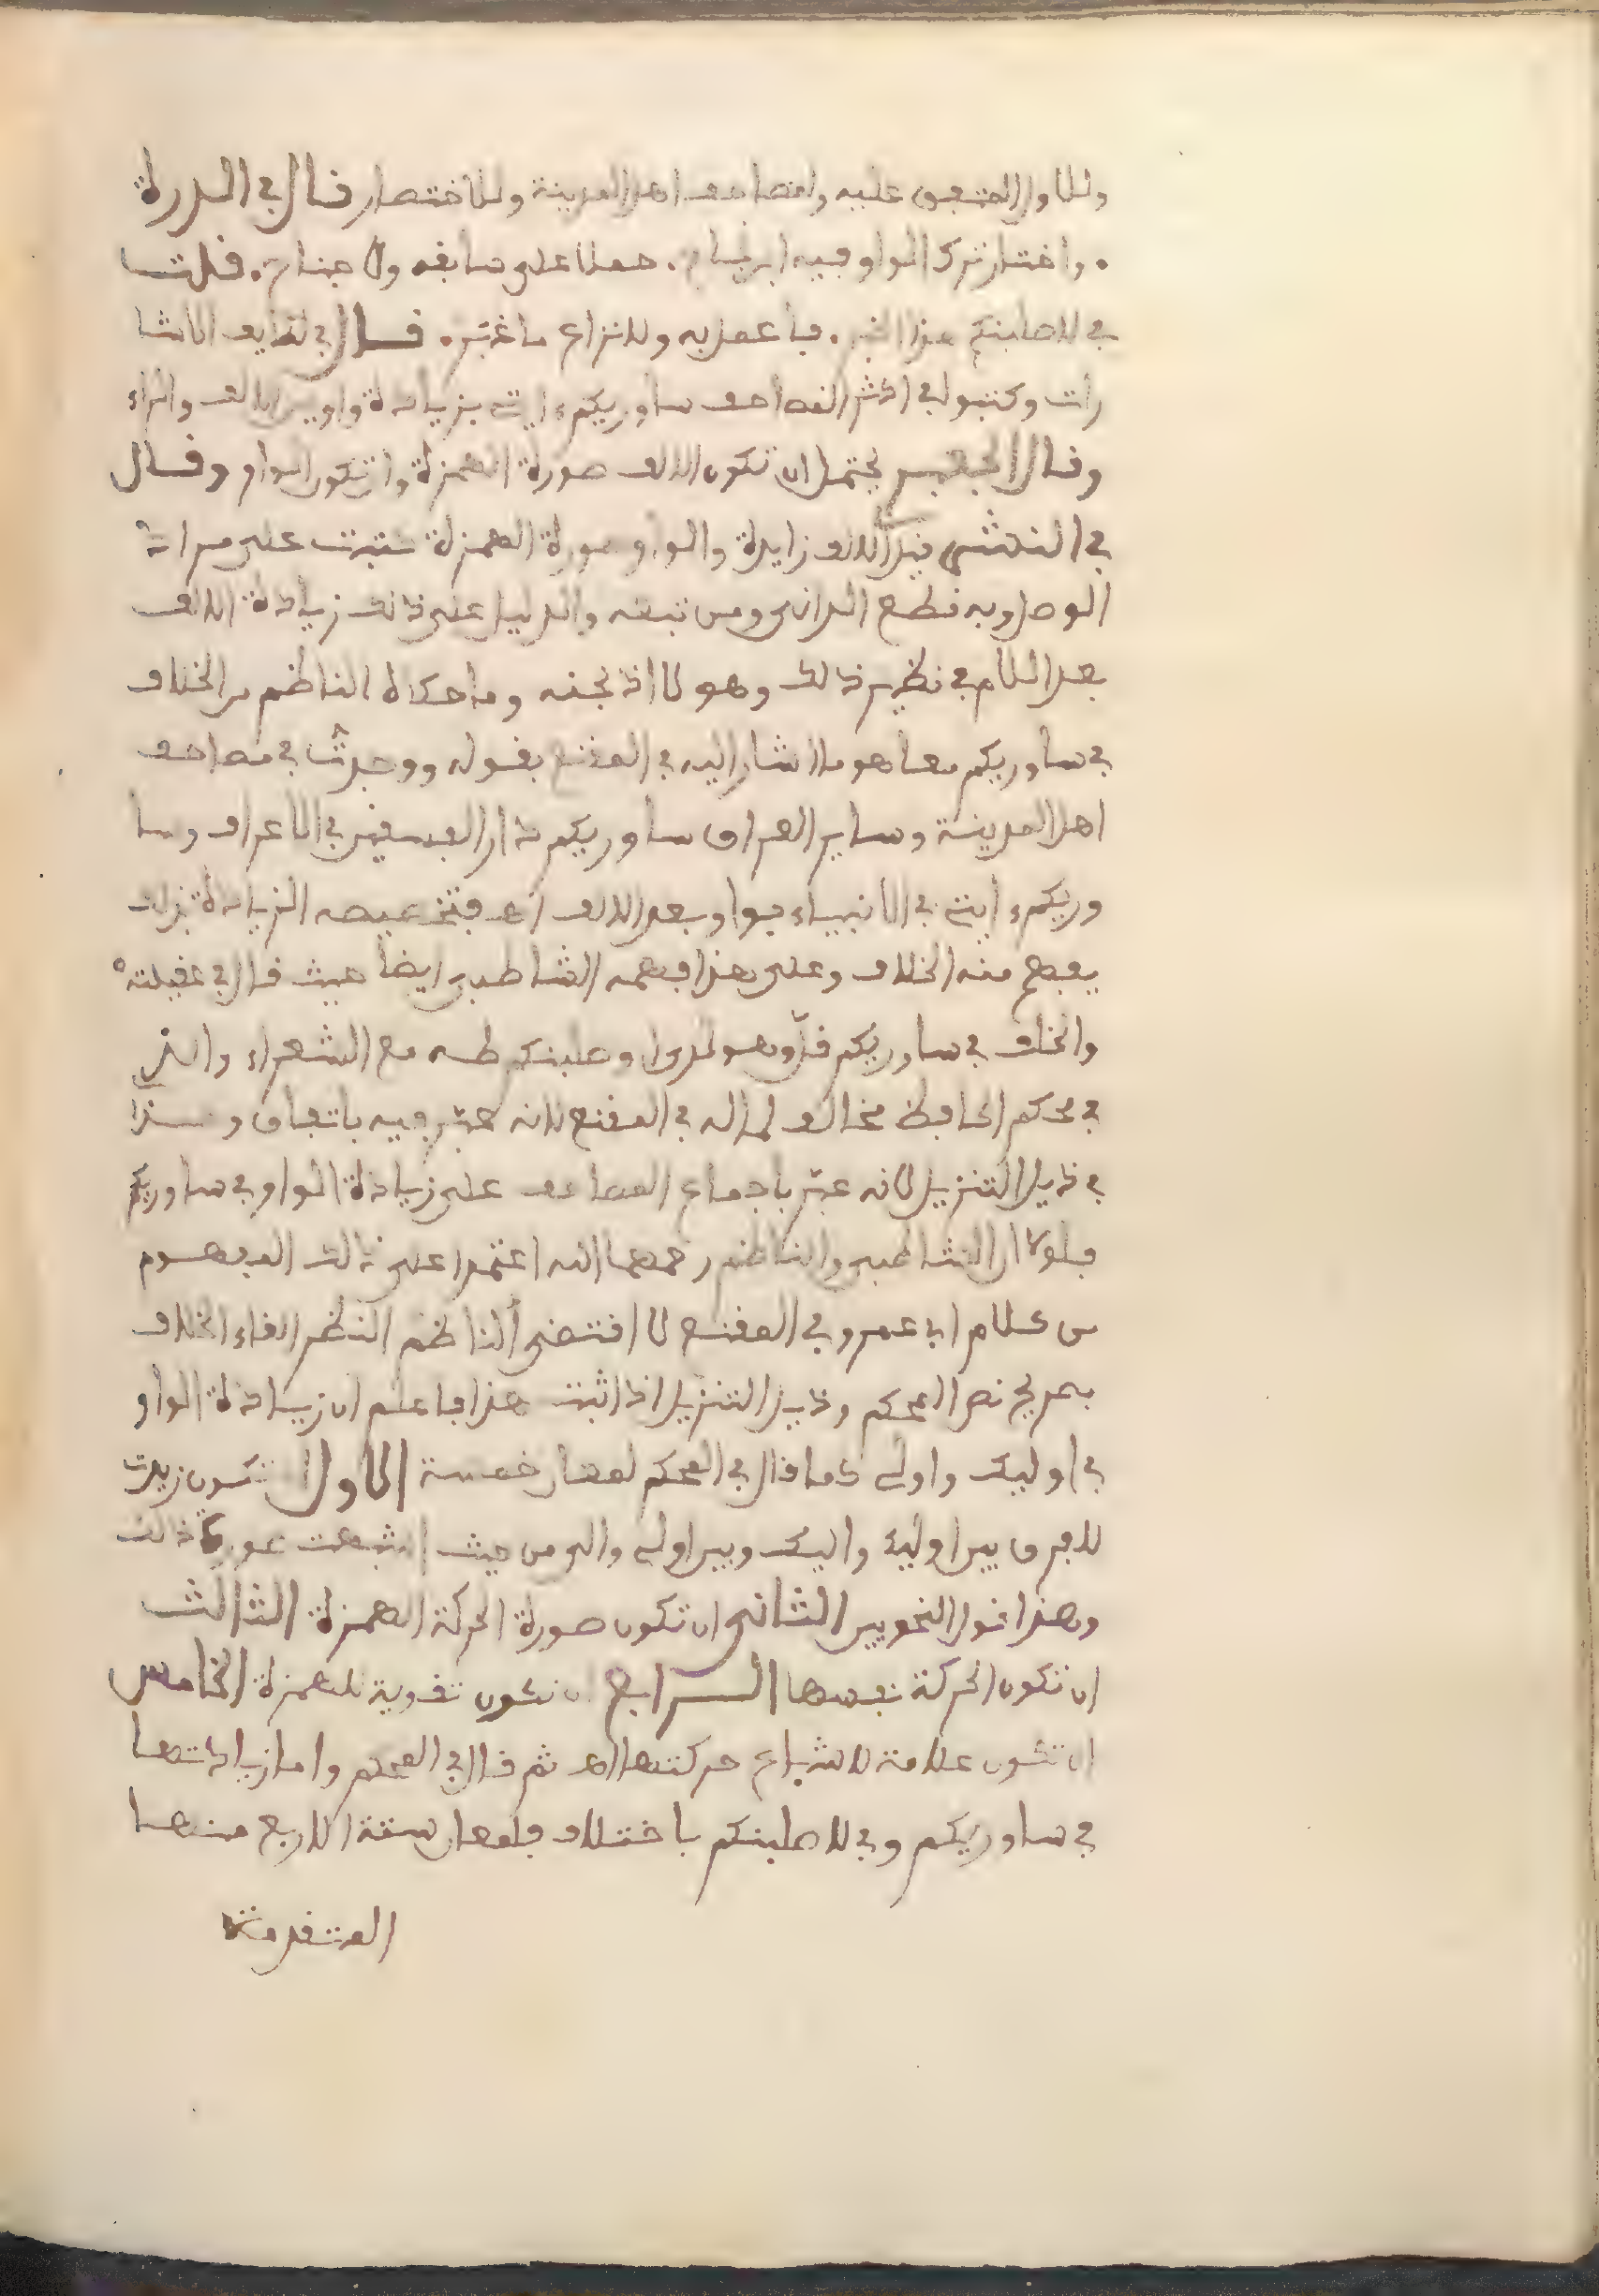 وللاول المتفق عليه ولمصاحف اهل المدينة وللاختصار قال في الدرة
واختار ترك الواو فيه ابن نجاح. حملا على سابقه ولا جناح. قلت
في لاصلبنكم هذا . فاعمل به وللنزاع ما غبر. قال في لطايف الاشا
رات وكتبوا في اكثر المصاحف ساوريكم ءايتے بزيادة واو بين الالف والراء
وقال الجعبري يحتمل ان تكون الالف صورة الهمزة وان تكون الواو وقال
في النشر قيل الالف زايدة والواو صورة الهمزة كتبت على مراد
الوصل وبه قطع الداني ومن تبعه والدليل على ذلك زيادة الالف
بعد اللام في نظير ذلك وهو لااذبحنه وما حكاه الناظم من الخلاف
في ساوريكم معا هو ما اشار اليه في المقنع بقوله ووجدت في مصاحف
اهل المدينة وساير العراق ساوريكم دار الفسقين في الاعراف وسا
وريكمء ايتے في الانبياء بواو بعد الالف اه فتخصيصه الزيادة بذلك
يفهم منه الخلاف وعلى هذا فهمه الشاطبي ايضا حيث قال في عقيلته
والخلف في ساوريكم قل وهو لدى اوصلبنكم طه مع الشعراء والذي
في محكم الحافظ مخالف لما له في المقنع لانه عبر فيه باتفاق وكذا
في ذيل التنزيل لانه عبر باجماع المصاحف على زيادة الواو في ساوريكم
فلولا ان الشاطبي والناظم رحمهما الله اعتمدا على ذلك المفهوم
من كلام ابي عمرو في المقنع لا اقتضى الناظم النظر الغاء الخلاف
بصريح نص المحكم وذيل التنزيل اذا ثبت هذا فاعلم ان زيادة الواو
في اوليك واولے كما قال في المحكم لمعان خمسة الاول ان تكون زيدت
للفرق بين اوليك واليك وبين اولے والى من حيث اشبهت صورة ذلك
وهذا قول النحويين الثاني ان تكون صورة لحركة الهمزة الثالث
ان تكون الحركة نفسها الرابع ان تكون تقوية للهمزة الخامس
ان تكون علامة لاشباع حركتها اه ثم قال في المحكم واما زيادتها
في ساوريكم وفي لاصلبنكم باختلاف فلمعان ستة الاربع منها
المتقدمة